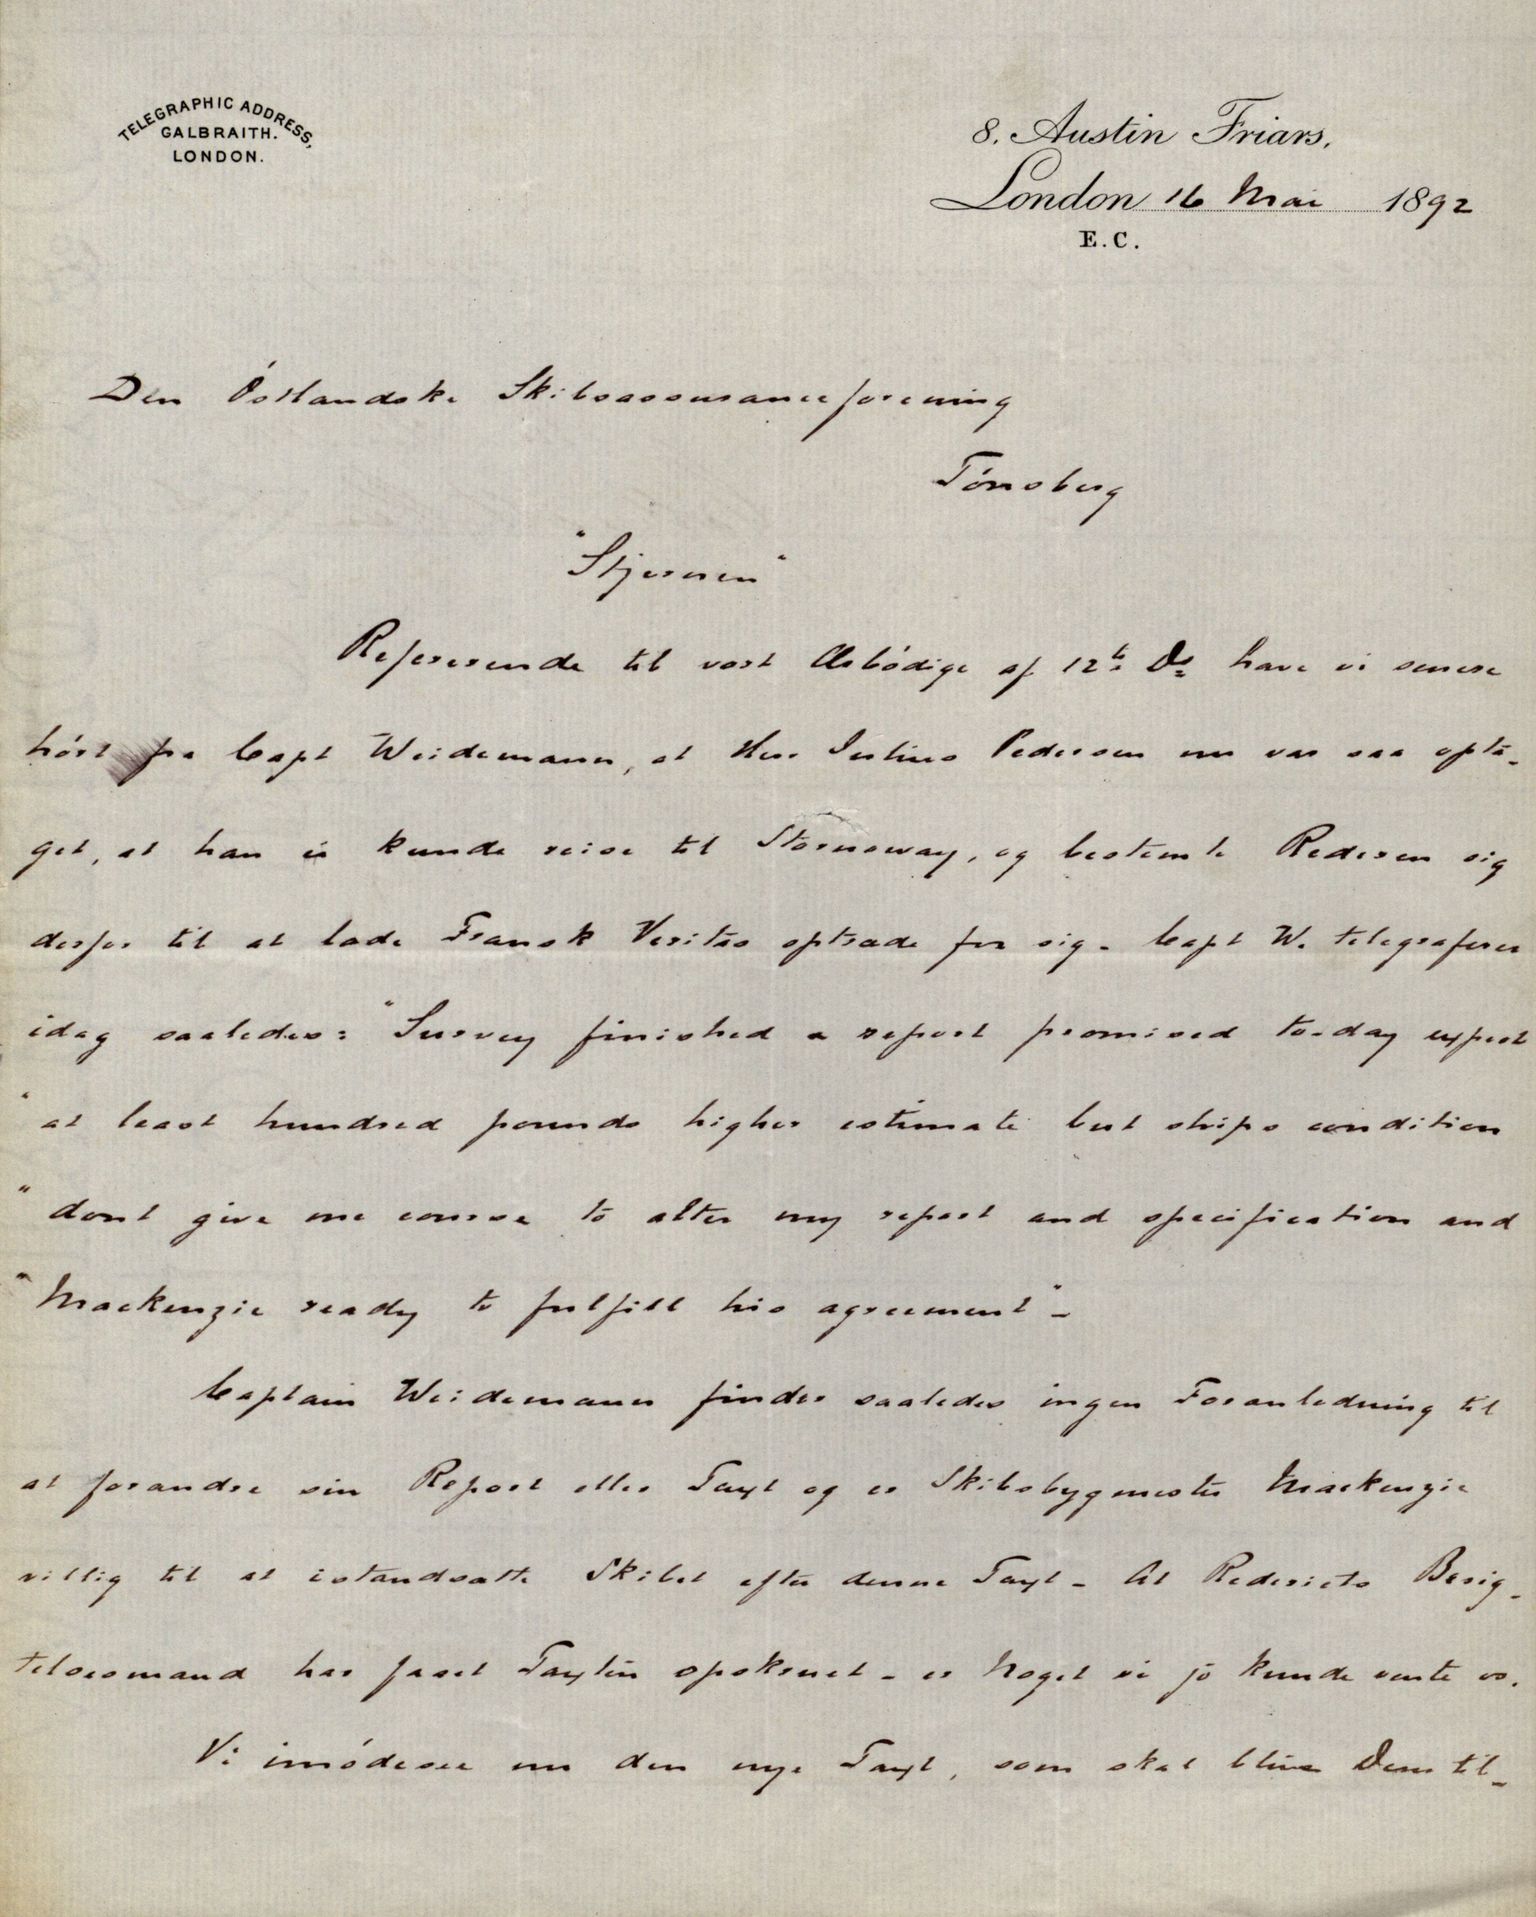 TELEGRAPHIC ADDRESS,
GALBRAITH.
LONDON.
8. Austin Friars,
London 16 Mai 1892
E.C.
Den Óstlandske Skibsassuranceforening
Tónsberg
"Stjernen"
Refererende til vort Ærbódige af 12te Ds have vi senere
hórt fra Capt Weidemann, at Herr Julius Pedersen nu var saa opta-
get, at han ei kunde reise til Stornoway, og bestemte Rederen sig
derfor til at lade Fransk Veritas optræde for sig - Capt W. telegraferer
idag saaledes: "Survey finished a report promised to-day expect
"at least hundred pounds higher estimate but ships condition
"dont give me course to alter my report and specification and
"Mackenzie ready to fulfill his agreement" -
Captain Weidemann finder saaledes ingen Foranledning til
at forandre sin Report eller Taxt og er Skibsbygmester Mackenzie
villig til at istandsatte Skibet efter denne Taxt - At Rederiets Besig-
telsesmand har faaet Taxten opskruet - er Noget vi jo kunde vente os.
Vi imódesee nu den nye Taxt, som skal blive Dem til-